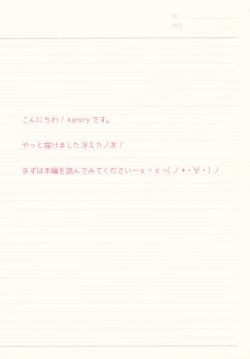 こんにちわ! karoryです。
やっと描けました冴えカノ本!
まずは本編を読んでみてくださいーε=ε=(ノ*・∀・)ノ